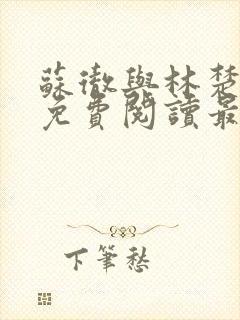 蘇徹與林楚
免費閱讀最
下筆愁